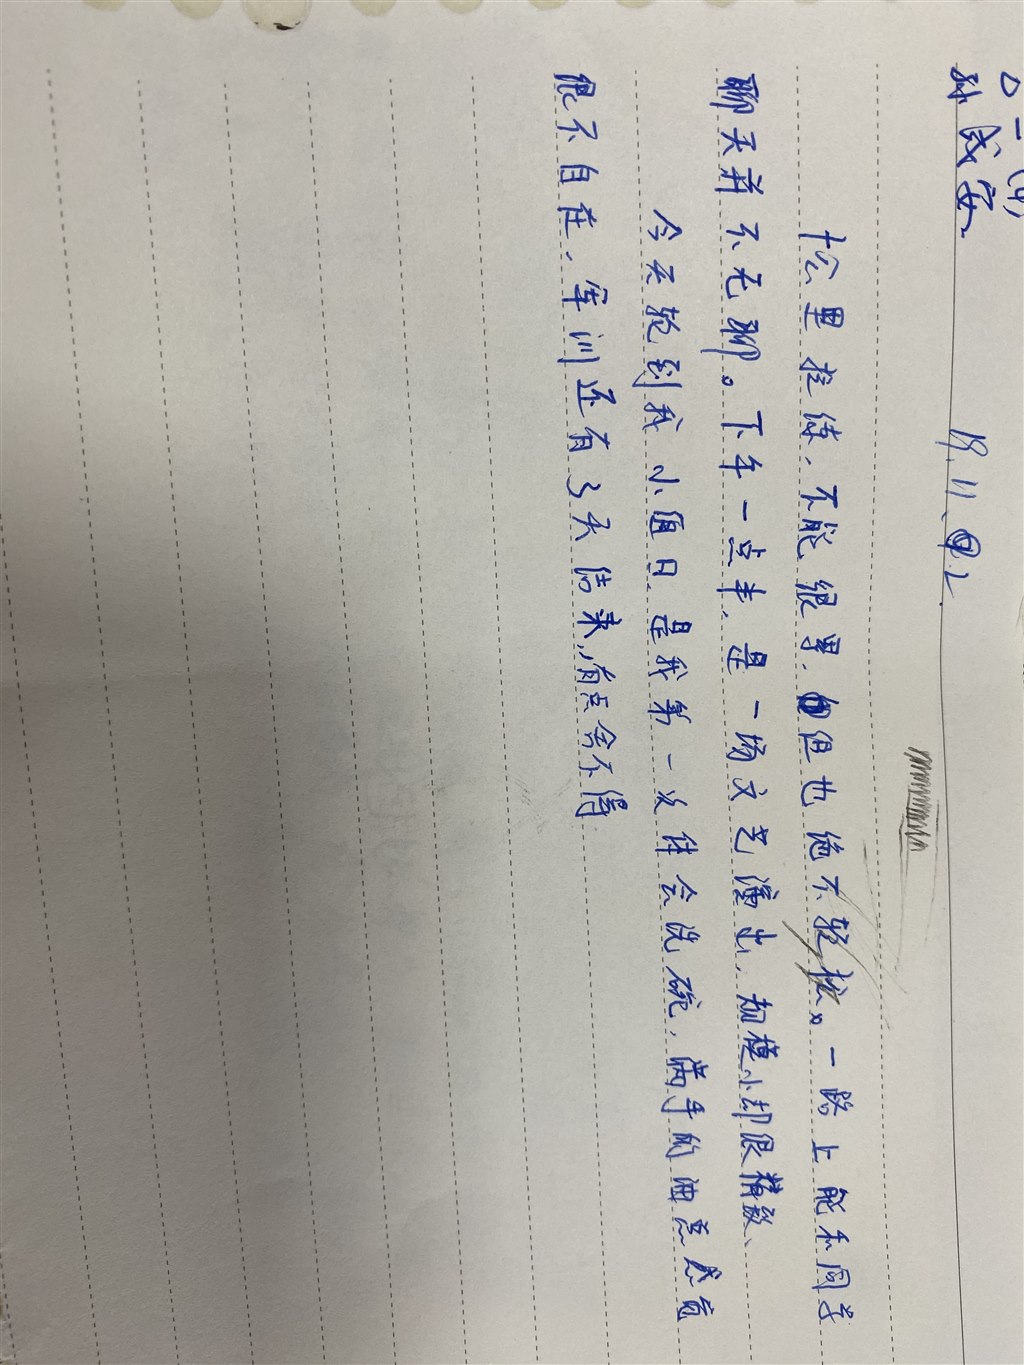 一(4)
孙成安 19.11.2
十公里拉练，不能很累，但也绝不轻松。一路上能和同学
聊天并不无聊。下午一点半，是一场文艺演出，规模小却很精致、
今天轮到我小值日，是我第一次体会洗碗，满手的油总感觉
很不自在，军训还有3天结束，有点舍不得